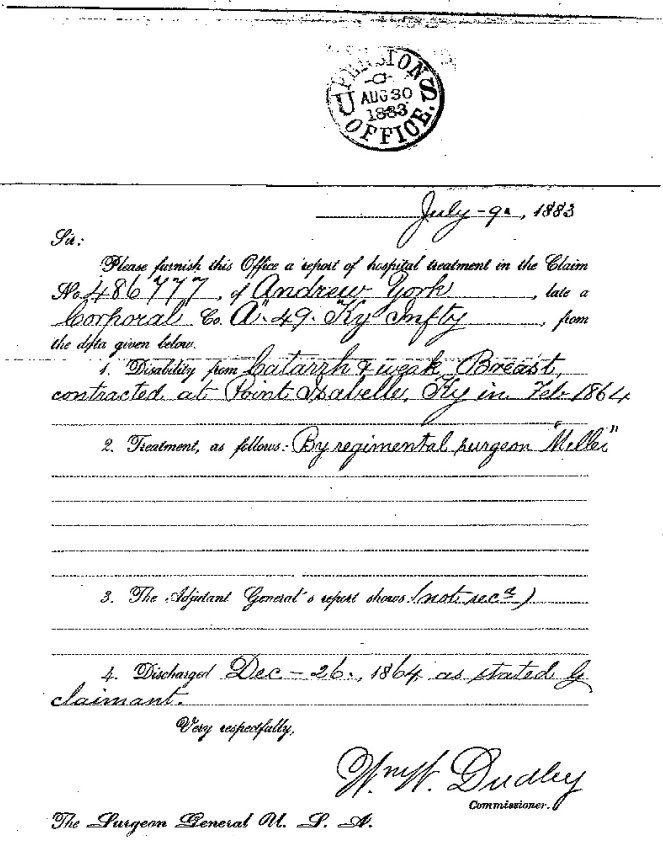 U.S. PENSION OFFICE.
AUG 30
1883
July - 9, 1883
Sir:
Please furnish this Office a report of hospital treatment in the Claim
No. 486777, of Andrew York, late a
Corporal Co. "A" 49. Ky Infty, from
the data given below.
1. Disability from Catarrh & weak Breast,
contracted at Point Isabelle, Ky in Feb 1864
2. Treatment, as follows: By regimental surgeon
3. The Adjutant General's report shows: (not recd)
4. Discharged Dec - 26., 1864, as stated by
claimant.
Very respectfully,
Wm W. Dudley
Commissioner.
The Surgeon General U. S. A.